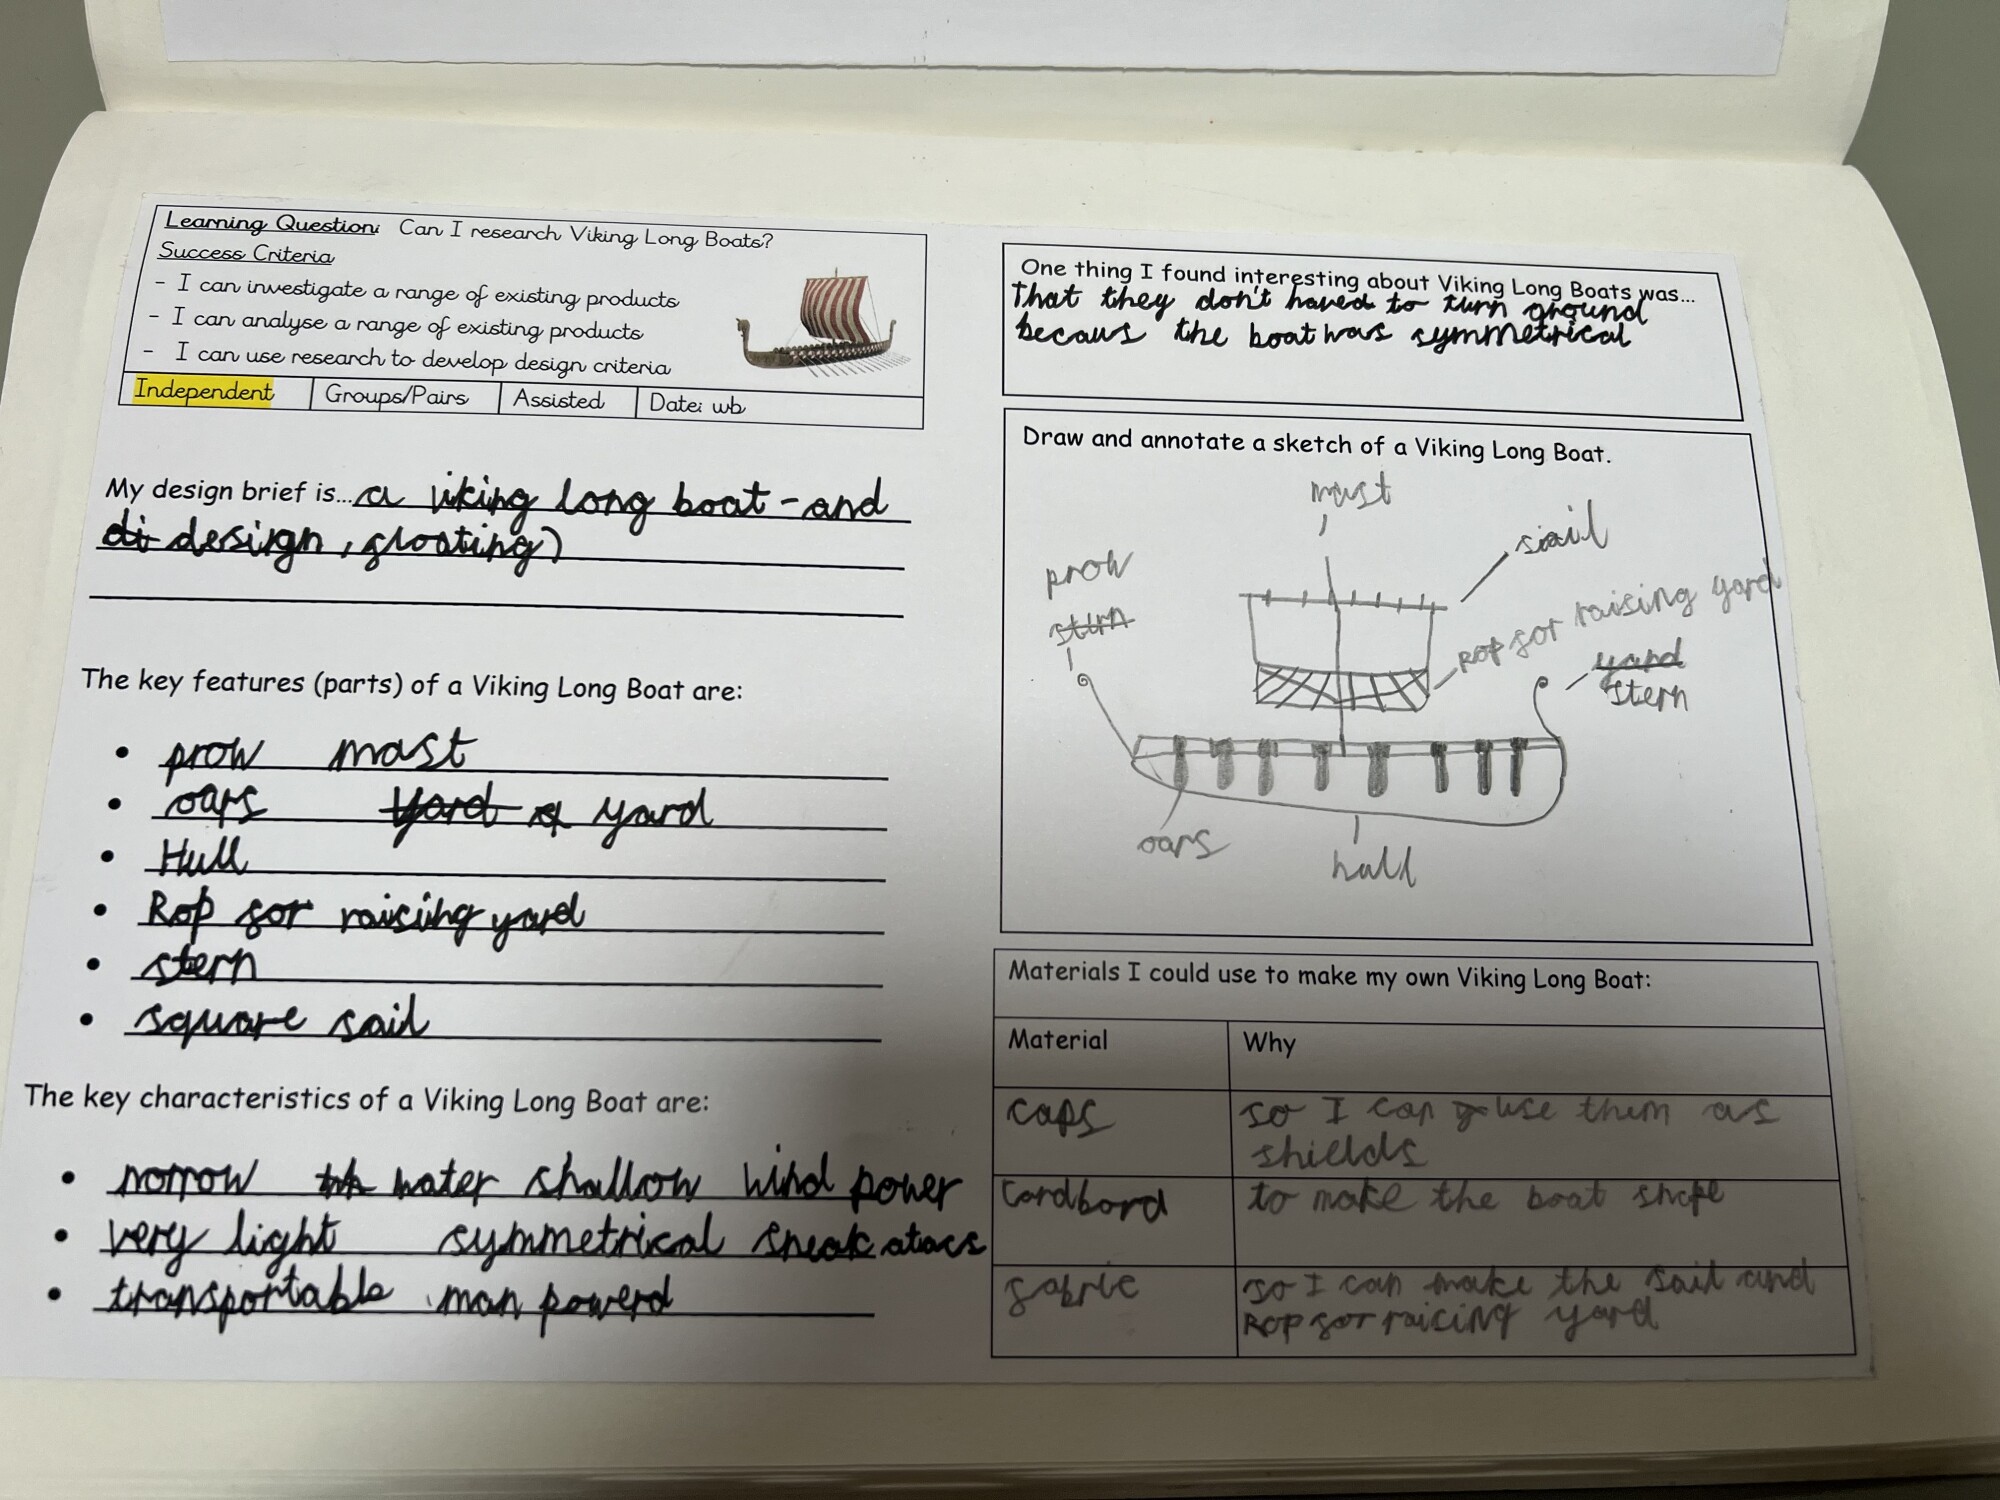 Learning Question: Can I research Viking Long Boats?
Success Criteria
- I can investigate a range of existing products
- I can analyse a range of existing products
- I can use research to develop design criteria
Independent Groups/Pairs Assisted Date: wb
My design brief is... a viking long boat - and
di desirgn, gloating)
The key features (parts) of a Viking Long Boat are:
• prow mast
• oars yard yard
• Hull
• Rop gor raising yard
• stern
• square sail
The key characteristics of a Viking Long Boat are:
• norrow water shallow wind power
• very light symmetrical sneak atacs
• transportable man powerd
One thing I found interesting about Viking Long Boats was...
That they don't haved to turn ground
becaus the boat was symmetrical
Draw and annotate a sketch of a Viking Long Boat.
mast
sail
prow
stern
Rop gor raising yard
yard
stern
oars
hull
Materials I could use to make my own Viking Long Boat:
Material Why
caps so I can use them as
shields
Cordbord to make the boat shape
gabric so I can make the sail and
Rop gor raicing yard